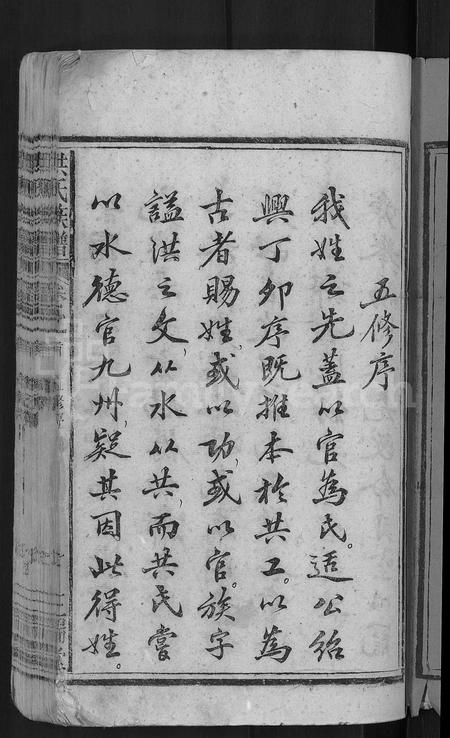 五修序
我姓之先蓋以官為氏。适公紹
興丁卯序既推本於共工。以為
古者賜姓，或以功，或以官。族字
謚洪之文，从水从共，而共氏嘗
以水德官九州，疑其因此得姓。
洪氏族譜